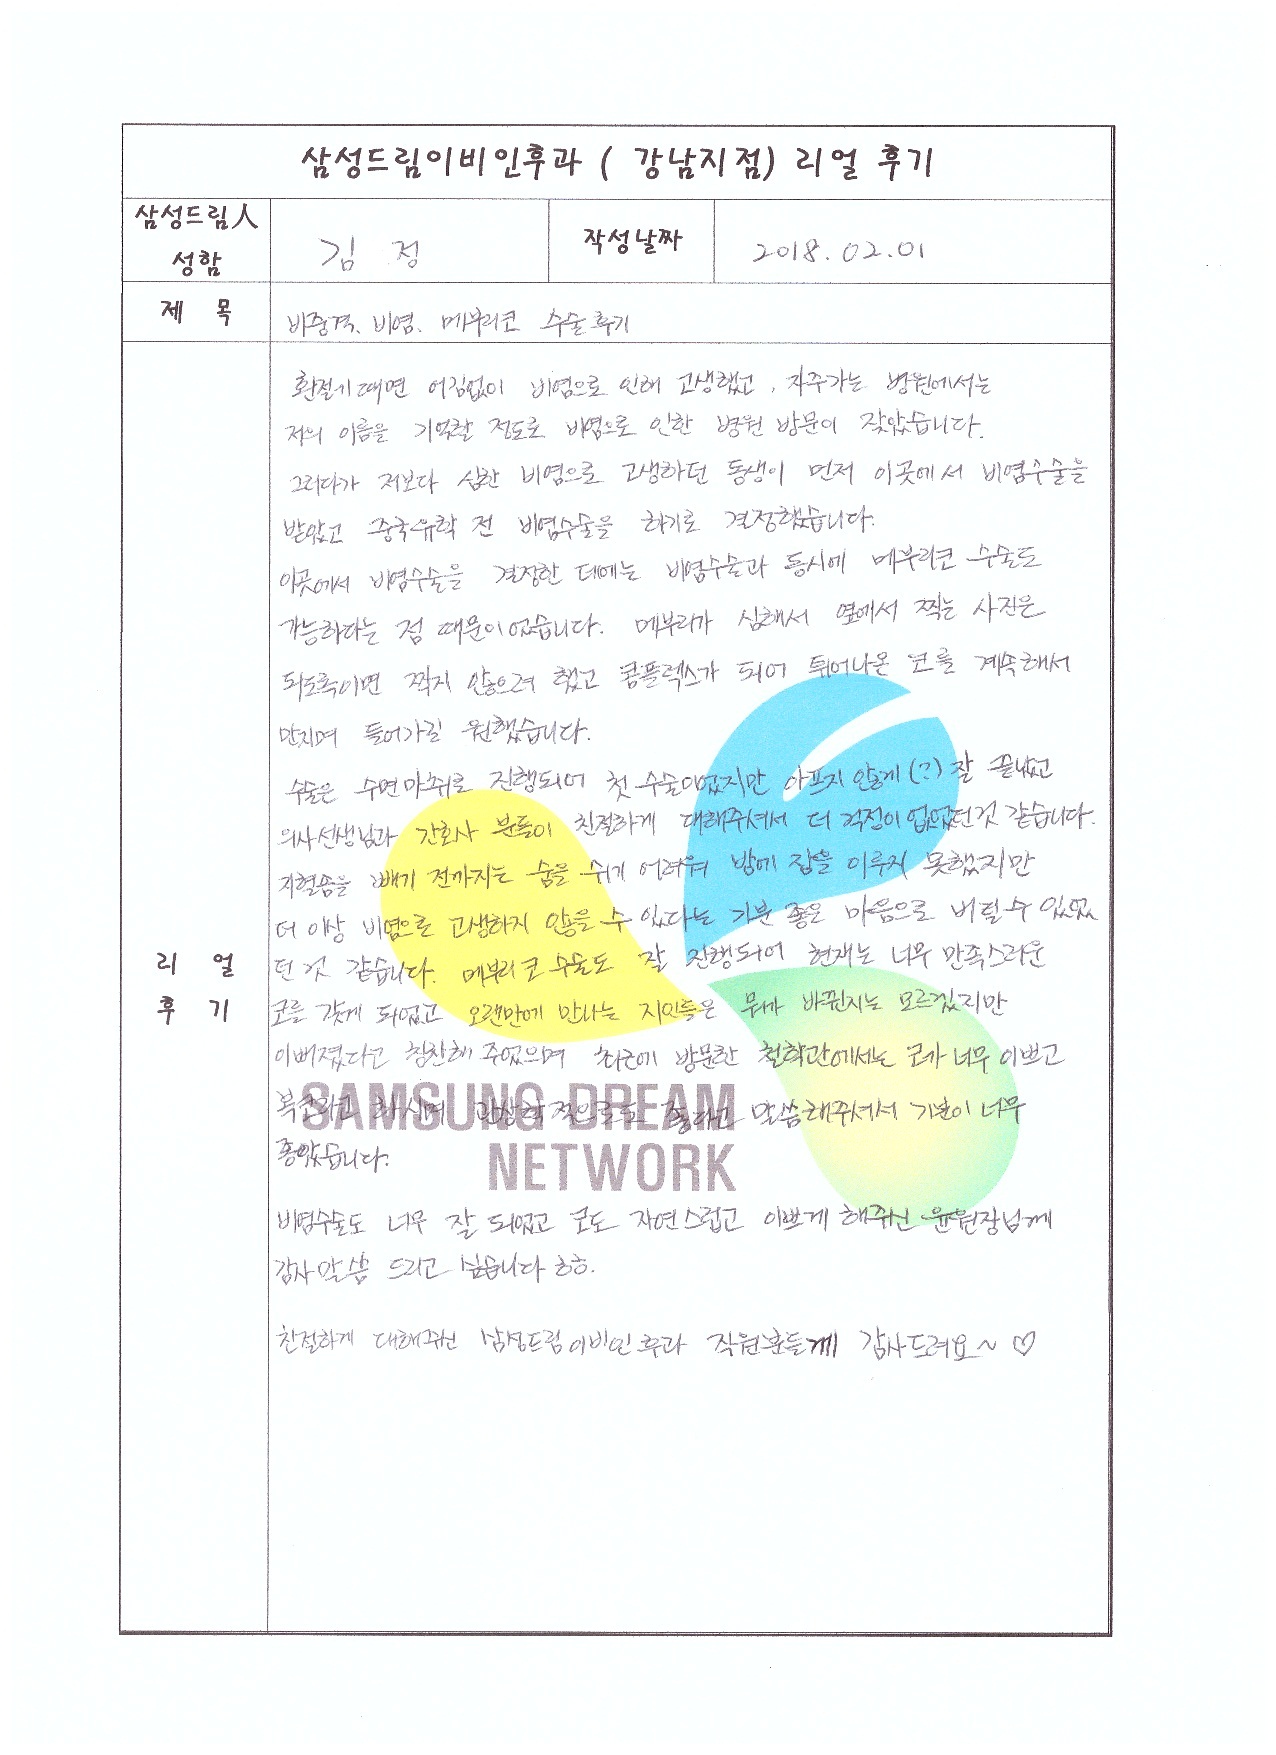 삼성드림이비인후과 ( 강남지점) 리얼 후기
삼성드림人 성함
김 정
작성날짜
2018. 02. 01
제 목
비중격, 비염, 메부리코 수술후기
리 얼 후 기
환절기 때면 어김없이 비염으로 인해 고생했고, 자주가는 병원에서는
저의 이름을 기억할 정도로 비염으로 인한 병원 방문이 잦았습니다.
그러다가 저보다 심한 비염으로 고생하던 동생이 먼저 이곳에서 비염수술을
받았고 중국유학 전 비염수술을 하기로 결정했습니다.
이곳에서 비염수술을 결정한 데에는 비염수술과 동시에 메부리코 수술도
가능하다는 점 때문이었습니다. 메부리가 심해서 옆에서 찍는 사진은
되도록이면 찍지 않으려 했고 콤플렉스가 되어 튀어나온 코를 계속해서
만지며 들어가길 원했습니다.
수술은 수면마취로 진행되어 첫 수술이었지만 아프지 않게(?) 잘 끝났고
의사선생님과 간호사 분들이 친절하게 대해주셔서 더 걱정이 없었던것 같습니다.
지혈솜을 빼기 전까지는 숨을 쉬기 어려워 밤에 잠을 이루지 못했지만
더 이상 비염으로 고생하지 않을 수 있다는 기분 좋은 마음으로 버틸수 있었
던 것 같습니다. 메부리코 수술도 잘 진행되어 현재는 너무 만족스러운
코를 갖게 되었고 오랜만에 만나는 지인들은 뭐가 바뀐지는 모르겠지만
이뻐졌다고 칭찬해 주었으며 최근에 방문한 철학관에서는 코가 너무 이쁘고
복코라고 하시며 관상학적으로도 좋다고 말씀해주셔서 기분이 너무
좋았습니다.
비염수술도 너무 잘 되었고 코도 자연스럽고 이쁘게 해주신 윤원장님께
감사말씀 드리고 싶습니다 ㅎㅎ.
친절하게 대해주신 삼성드림이비인후과 직원분들께 감사드려요~ ♡
SAMSUNG DREAM
NETWORK